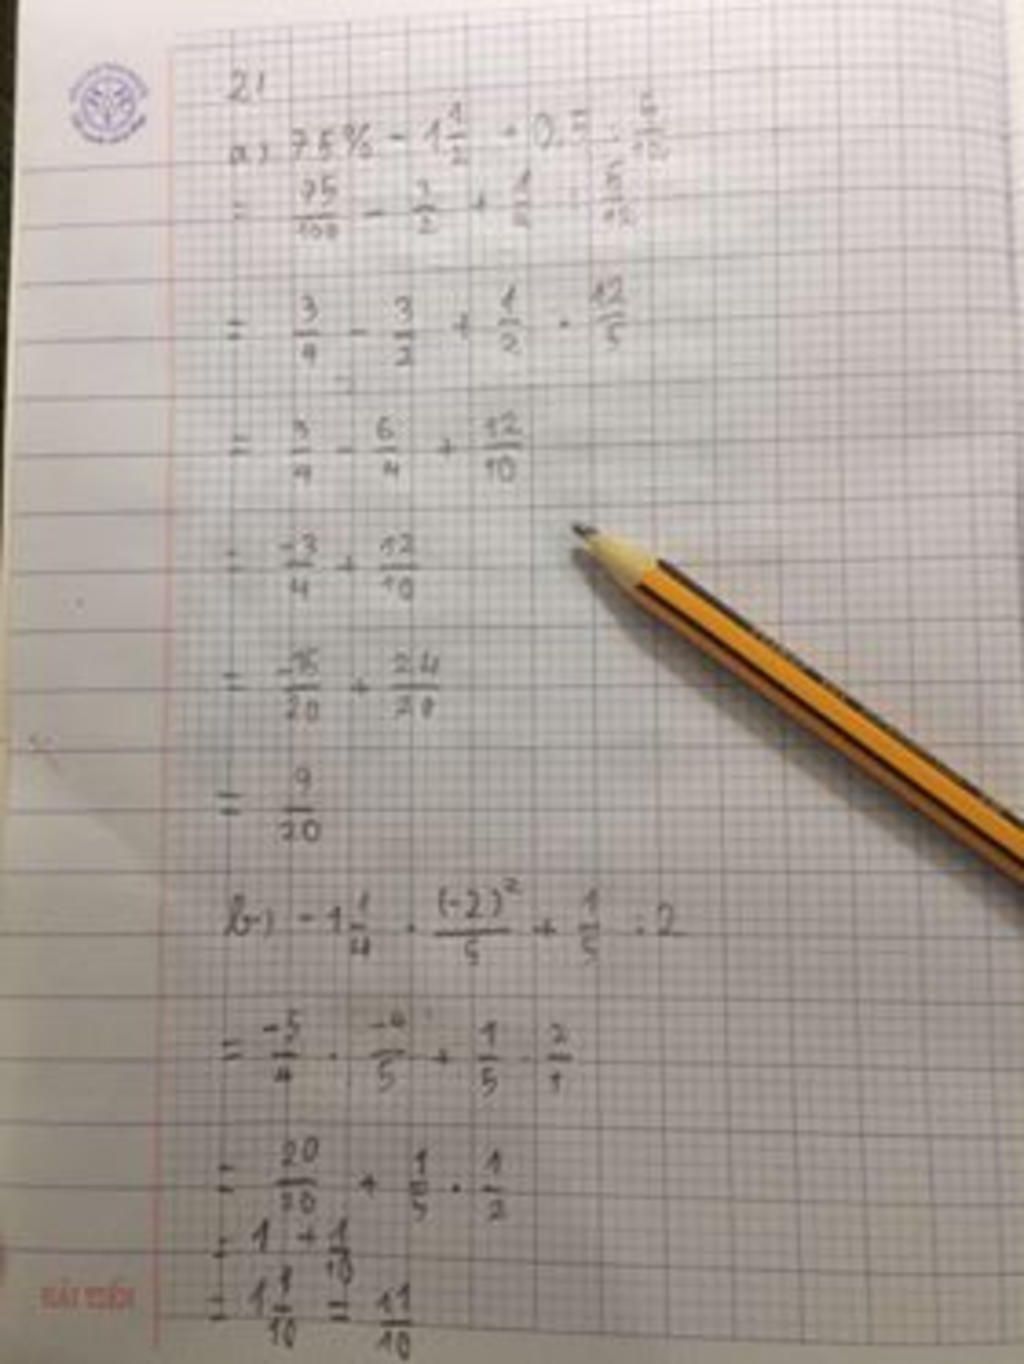 2!
a) 75% - 1 1/2 + 0,5 : 5/12
= 75/100 - 3/2 + 1/2 : 5/12
= 3/4 - 3/2 + 1/2 . 12/5
= 3/4 - 6/4 + 12/10
= -3/4 + 12/10
= -15/20 + 24/20
= 9/20
b) -1 1/4 . (-2)²/5 + 1/5 : 2
= -5/4 . -4/5 + 1/5 : 2/1
= 20/20 + 1/5 . 1/2
= 1 + 1/10
= 1 1/10 = 11/10
HẢI TIẾN